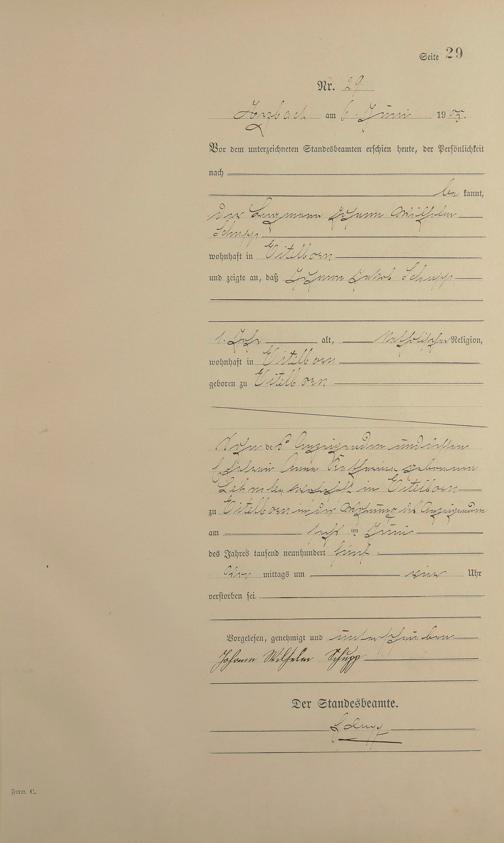 Seite 29
Nr. 29
am 6. Juni 1905.
Vor dem unterzeichneten Standesbeamten erschien heute, der Persönlichkeit
nach
be kannt,
der Bergmann Johann Wilhelm
Schupp
wohnhaft in Eitelborn
und zeigte an, daß Johann Jakob Schupp
1 Jahr alt, katholischer Religion,
wohnhaft in Eitelborn
geboren zu Eitelborn
Sohn des Anzeigenden und dessen
Ehefrau Anna Katharina geborenen
wohnhaft in Eitelborn
zu Eitelborn in der Wohnung des Anzeigenden
am Juni
des Jahres tausend neunhundert fünf
mittags um Uhr
verstorben sei.
Vorgelesen, genehmigt und unterschrieben
Johann Wilhelm Schupp
Der Standesbeamte.
Form. C.